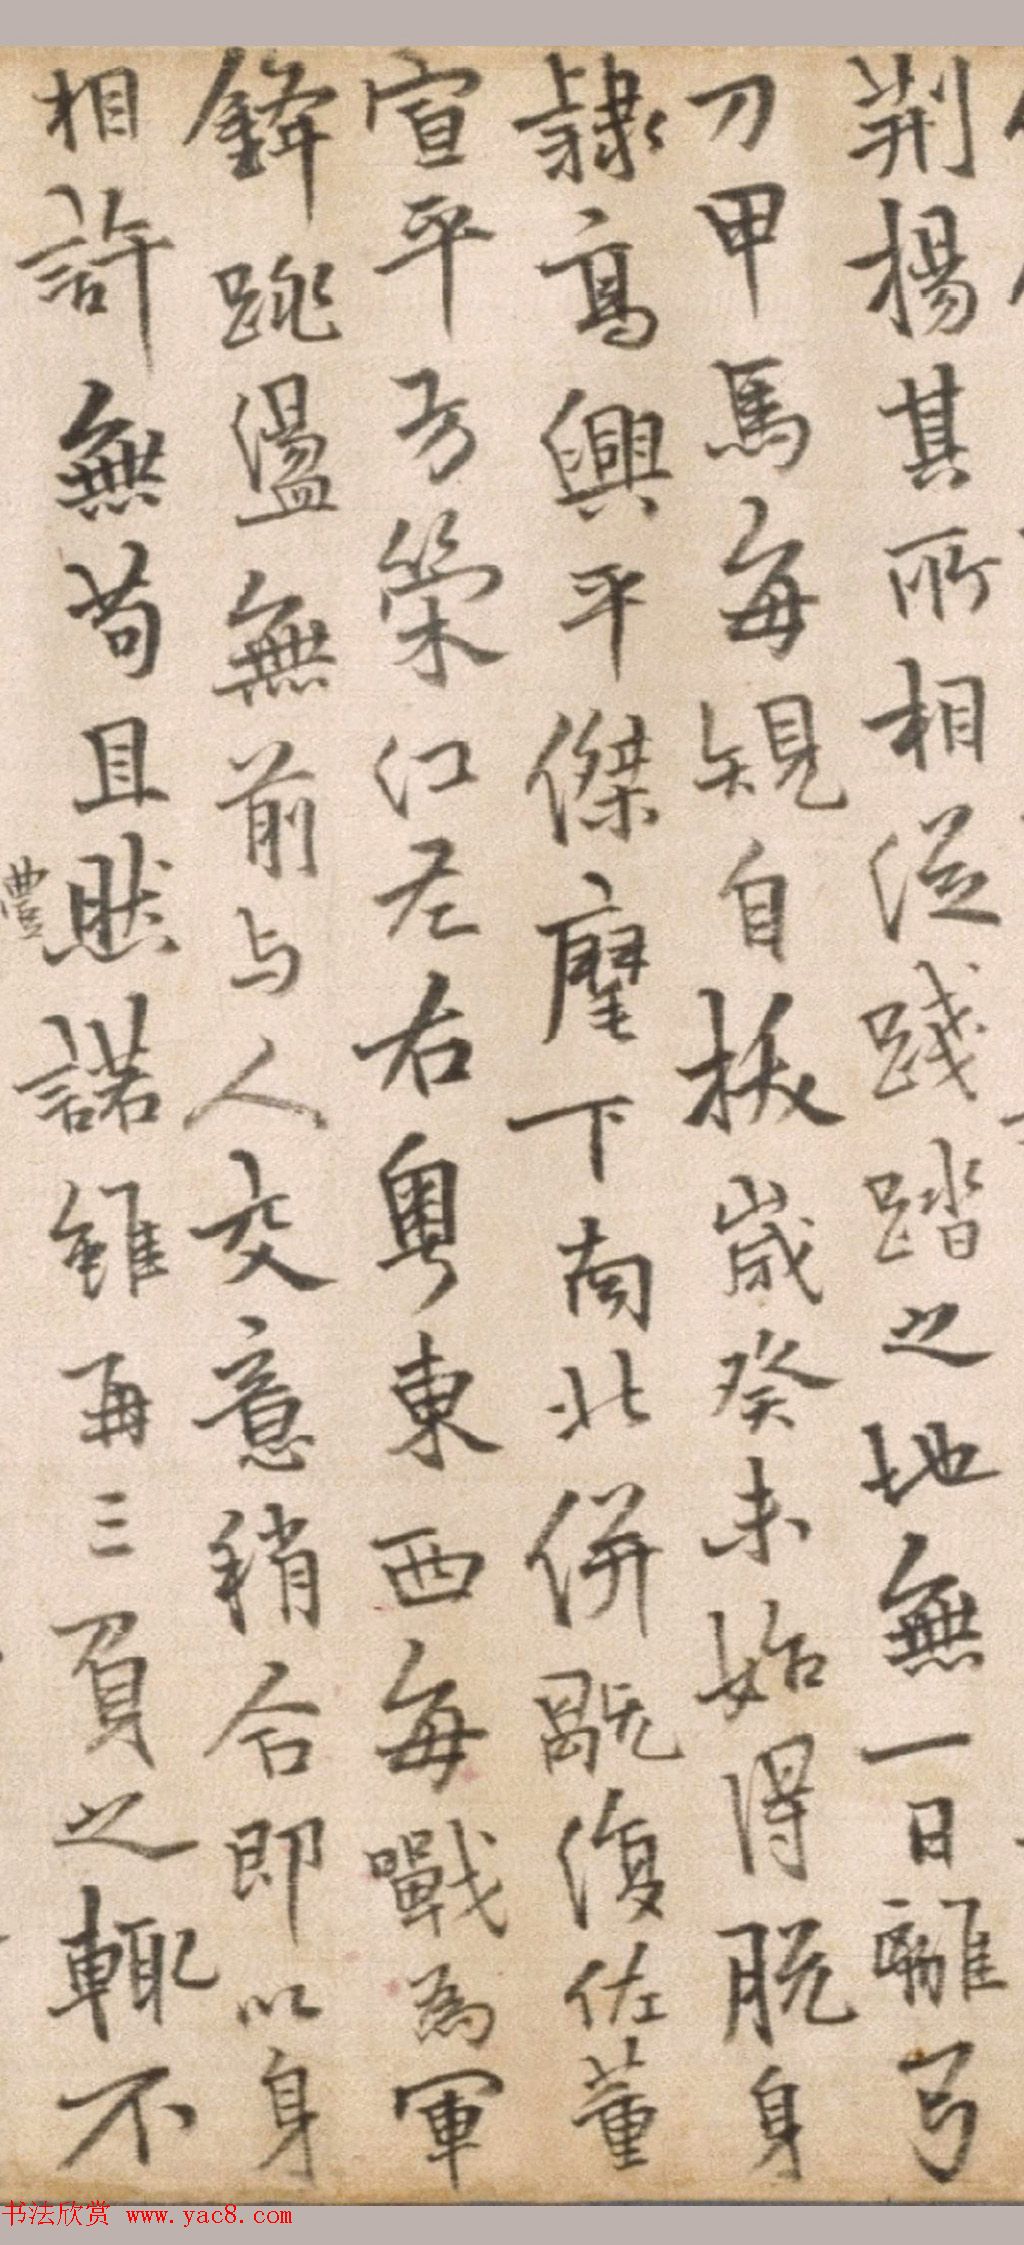 荆楊其所相從踐踏之地無一日離弓
刀甲馬每規自拔歲癸未始得脫身
隸高興平傑麾下南北併既復佐董
宣平芳築江左右粤東西每戰為軍
鋒跳盪無前与人交意稍合即以身
相許無苟且然諾雖再三負之輒不
豊
书法欣赏 www.yac8.com